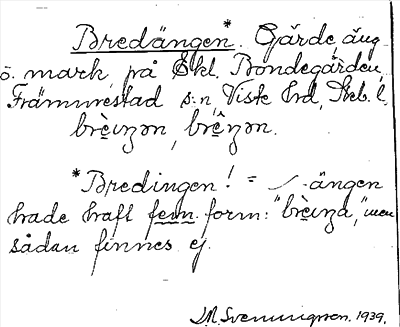 Bredängen*. Gärde, äng
o. mark på Ekl. Bondegården,
Främmestad s:n, Viste hd, Skb. l.
brèi̯ŋən, brêŋən.
*Bredingen! = ⁄. ängen
hade haft fem. form: "brèi̯ŋa," men
sådan finnes ej.
J.M. Svenningsson. 1939.